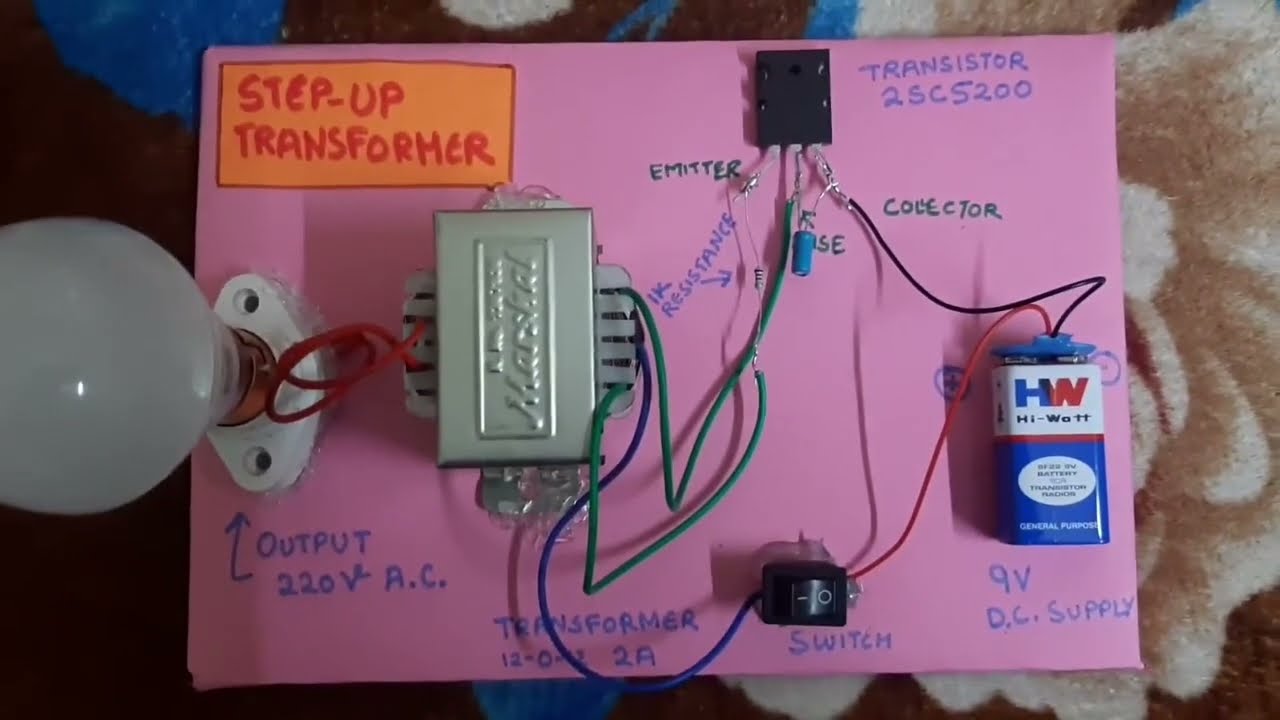 STEP-UP
TRANSFORMER
TRANSISTOR
2SC5200
EMITTER
COLECTOR
1K
RESISTANCE
Marshal
HW
Hi-Watt
6F22 9V
BATTERY
FOR
TRANSISTOR
RADIOS
GENERAL PURPOSE
OUTPUT
220V A.C.
TRANSFORMER
2A
SWITCH
9V
D.C. SUPPLY